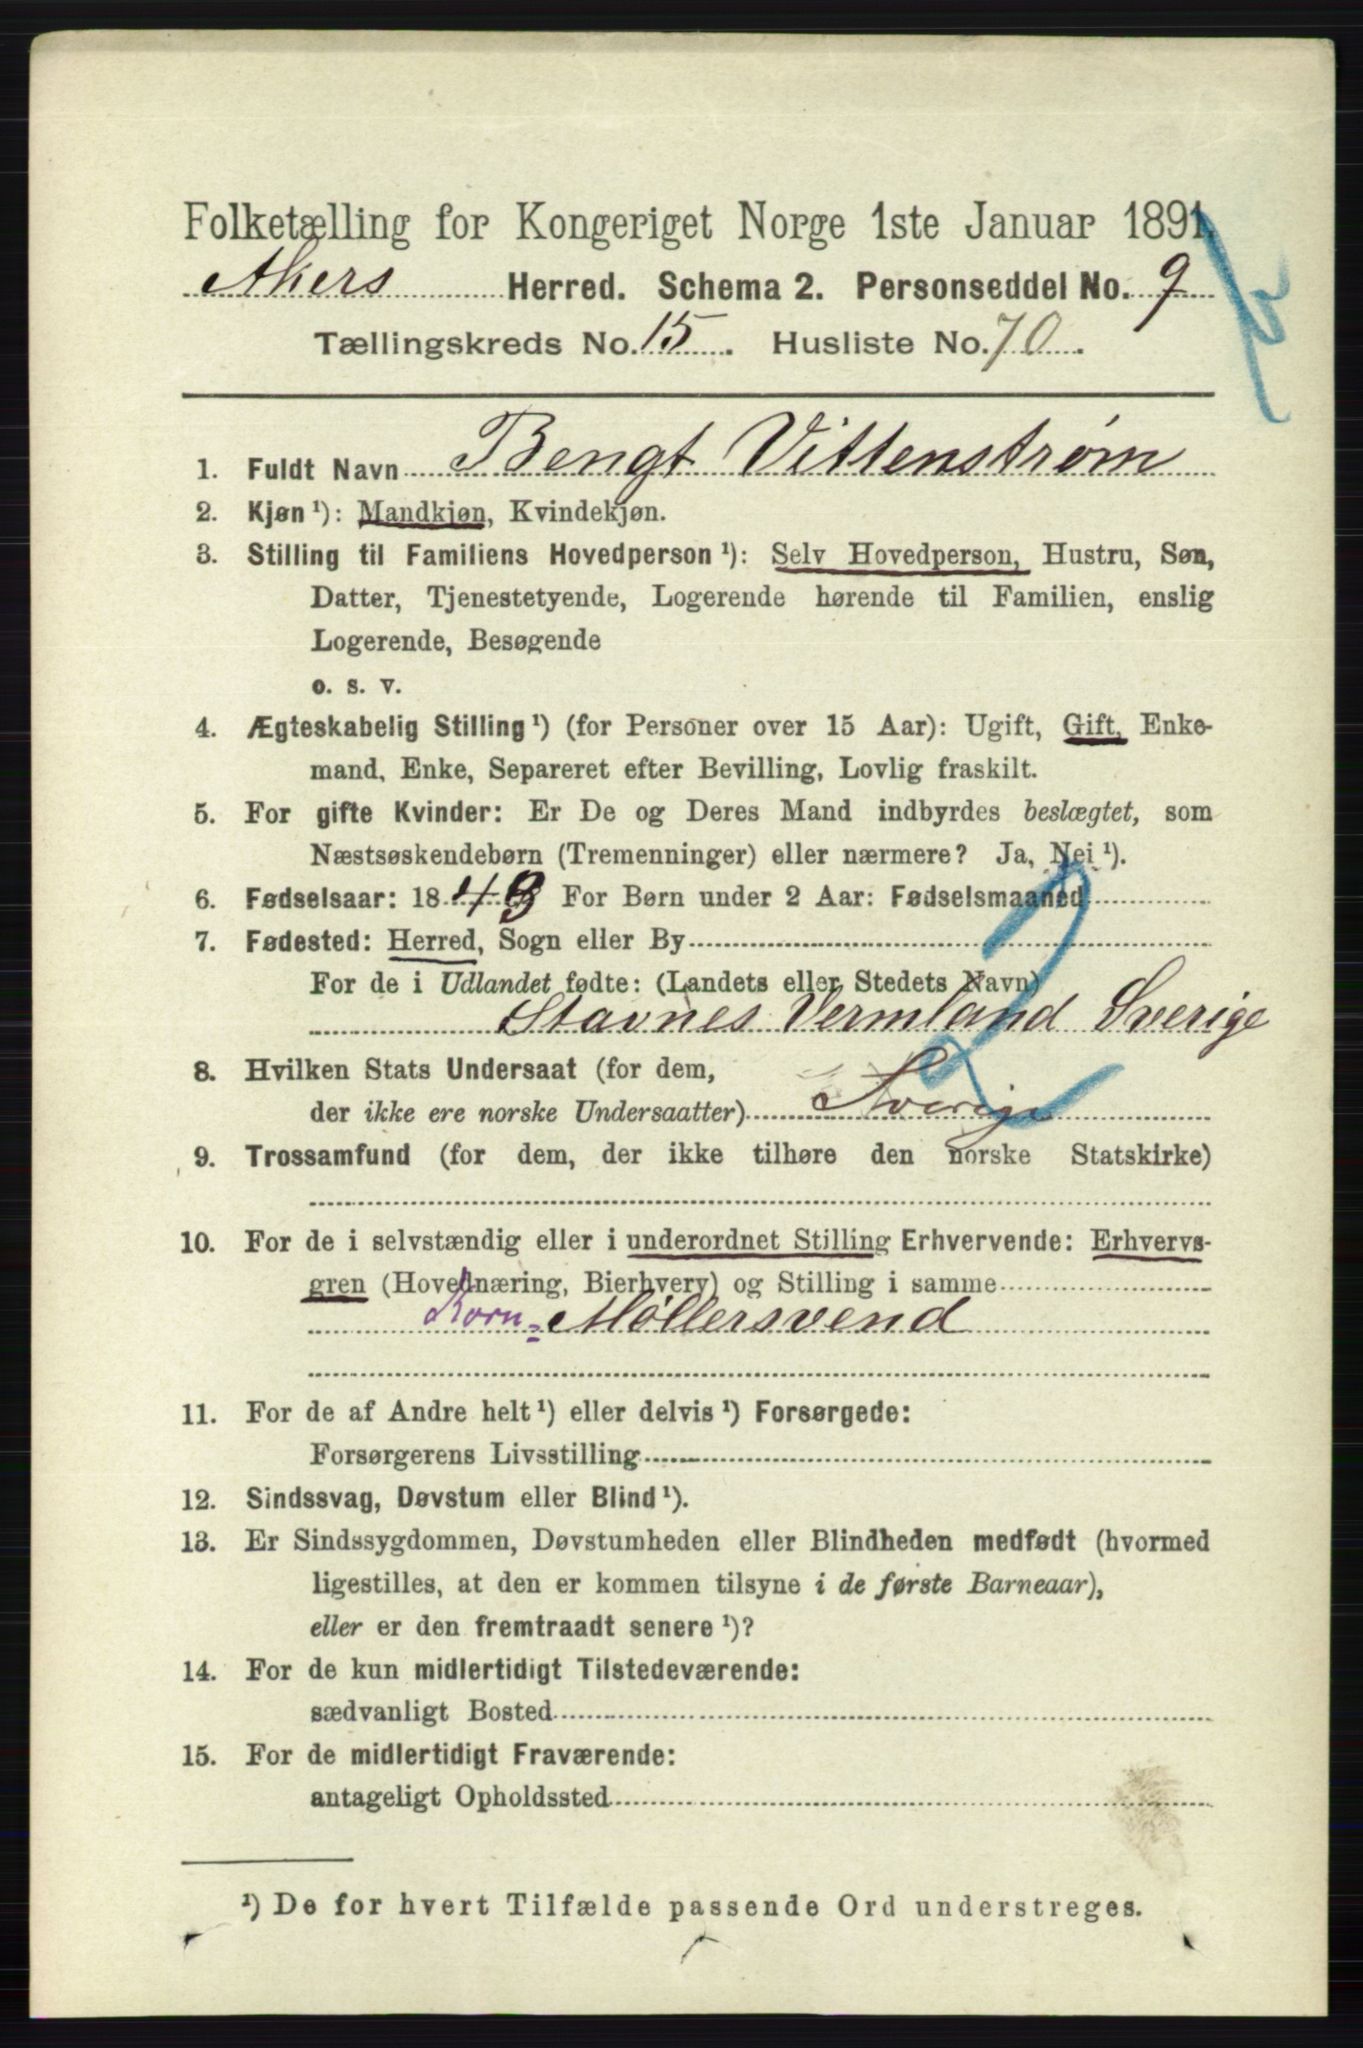 Folketælling for Kongeriget Norge 1ste Januar 1891.
Akers Herred. Schema 2. Personseddel No. 9
Tællingskreds No. 15. Husliste No. 70.
1. Fuldt Navn Bengt Vittenstrøm
2. Kjøn ¹): Mandkjøn, Kvindekjøn.
3. Stilling til Familiens Hovedperson ¹): Selv Hovedperson, Hustru, Søn,
Datter, Tjenestetyende, Logerende hørende til Familien, enslig
Logerende, Besøgende
o. s. v.
4. Ægteskabelig Stilling ¹) (for Personer over 15 Aar): Ugift, Gift, Enke-
mand, Enke, Separeret efter Bevilling, Lovlig fraskilt.
5. For gifte Kvinder: Er De og Deres Mand indbyrdes beslægtet, som
Næstsøskendebørn (Tremenninger) eller nærmere? Ja, Nei ¹).
6. Fødselsaar: 1843 For Børn under 2 Aar: Fødselsmaaned
7. Fødested: Herred, Sogn eller By
For de i Udlandet fødte: (Landets eller Stedets Navn)
Stavnes Vermland Sverige
8. Hvilken Stats Undersaat (for dem,
der ikke ere norske Undersaatter) Sverige
2
9. Trossamfund (for dem, der ikke tilhøre den norske Statskirke)
10. For de i selvstændig eller i underordnet Stilling Erhvervende: Erhvervs-
gren (Hovednæring, Bierhverv) og Stilling i samme
Korn- Møllersvend
11. For de af Andre helt ¹) eller delvis ¹) Forsørgede:
Forsørgerens Livsstilling
12. Sindssvag, Døvstum eller Blind ¹).
13. Er Sindssygdommen, Døvstumheden eller Blindheden medfødt (hvormed
ligestilles, at den er kommen tilsyne i de første Barneaar),
eller er den fremtraadt senere ¹)?
14. For de kun midlertidigt Tilstedeværende:
sædvanligt Bosted
15. For de midlertidigt Fraværende:
antageligt Opholdssted
¹) De for hvert Tilfælde passende Ord understreges.